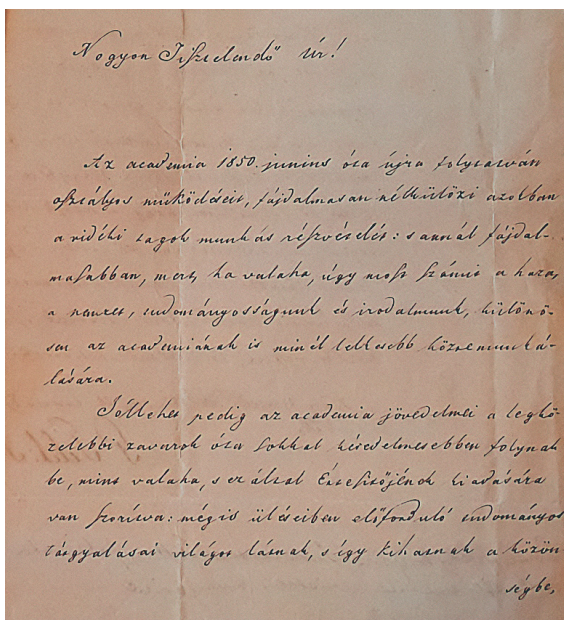 Nagyon Tisztelendő Úr!
Az academia 1850. junius óta újra folytatván
osztályos működéseit, fájdalmasan nélkülözi azokban
a vidéki tagok munkás részvételét: s annál fájdal-
masabban, mert, ha valaha, úgy most számít a haza,
a nemzet, tudományosságunk és irodalmunk, különö-
sen az academiának is minél lelkesebb közremunká-
lására.
Jóllehet pedig az academia jövedelmei a legkö-
zelebbi zavarok óta sokkal késedelmesebben folynak
be, mint valaha, s ez által Értesitőjének kiadására
van szorítva: mégis üléseiben előforduló tudományos
tárgyalásai világot látnak, s így kihatnak a közön
ségbe,